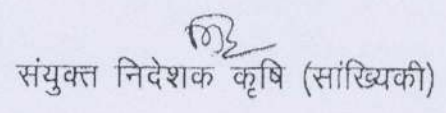 संयुक्त निदेशक कृषि (सांख्यिकी)